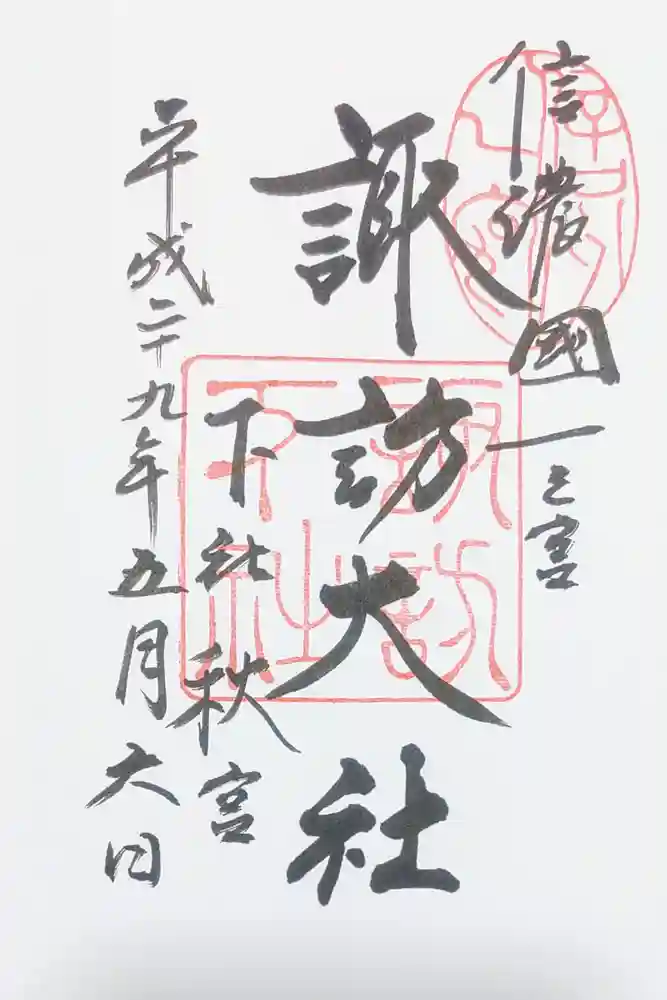 信濃國一之宮
諏訪大社
下社秋宮
平成二十九年五月六日